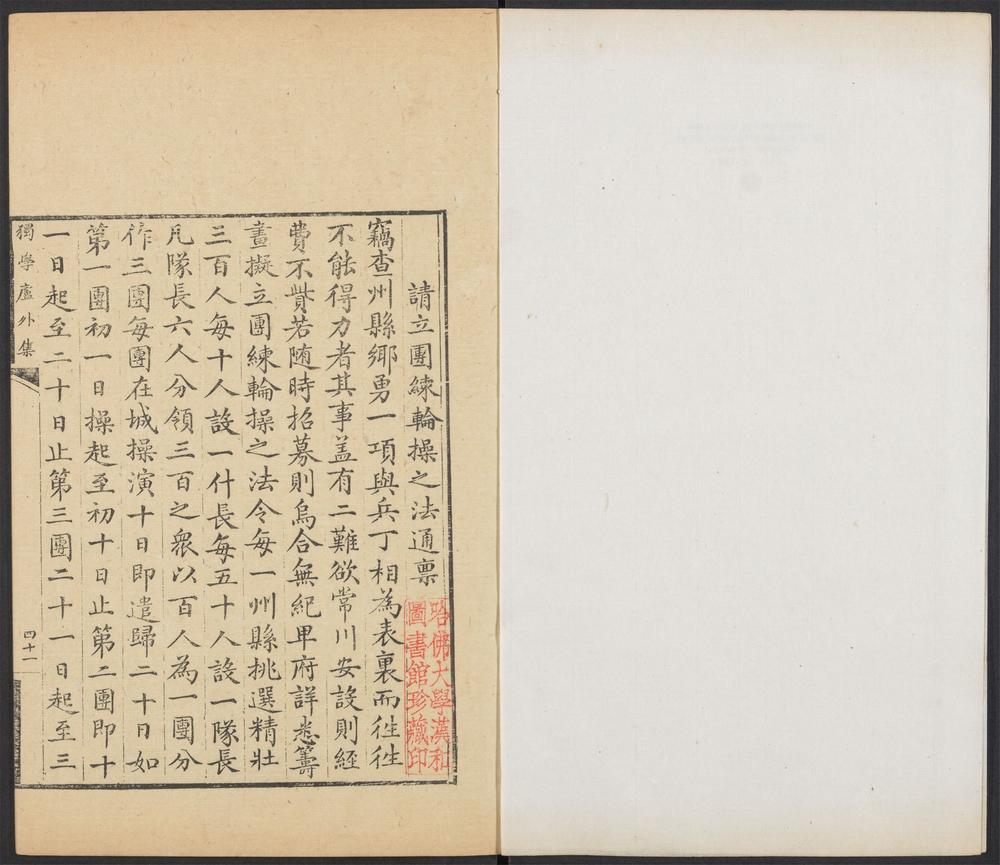 請立團練輪操之法通禀
竊查州縣鄉勇一項與兵丁相為表裏而徃徃
不能得力者其事盖有二難欲常川安設則經
費不貲若随時招募則烏合無紀卑府詳悉籌
畫擬立團練輪操之法令每一州縣挑選精壯
三百人每十人設一什長每五十人設一隊長
凡隊長六人分領三百之衆以百人為一團分
作三團每團在城操演十日即遣歸二十日如
第一團初一日操起至初十日止第二團即十
一日起至二十日止第三團二十一日起至三
獨學廬外集
四十一
哈佛大學漢和
圖書館珍藏印